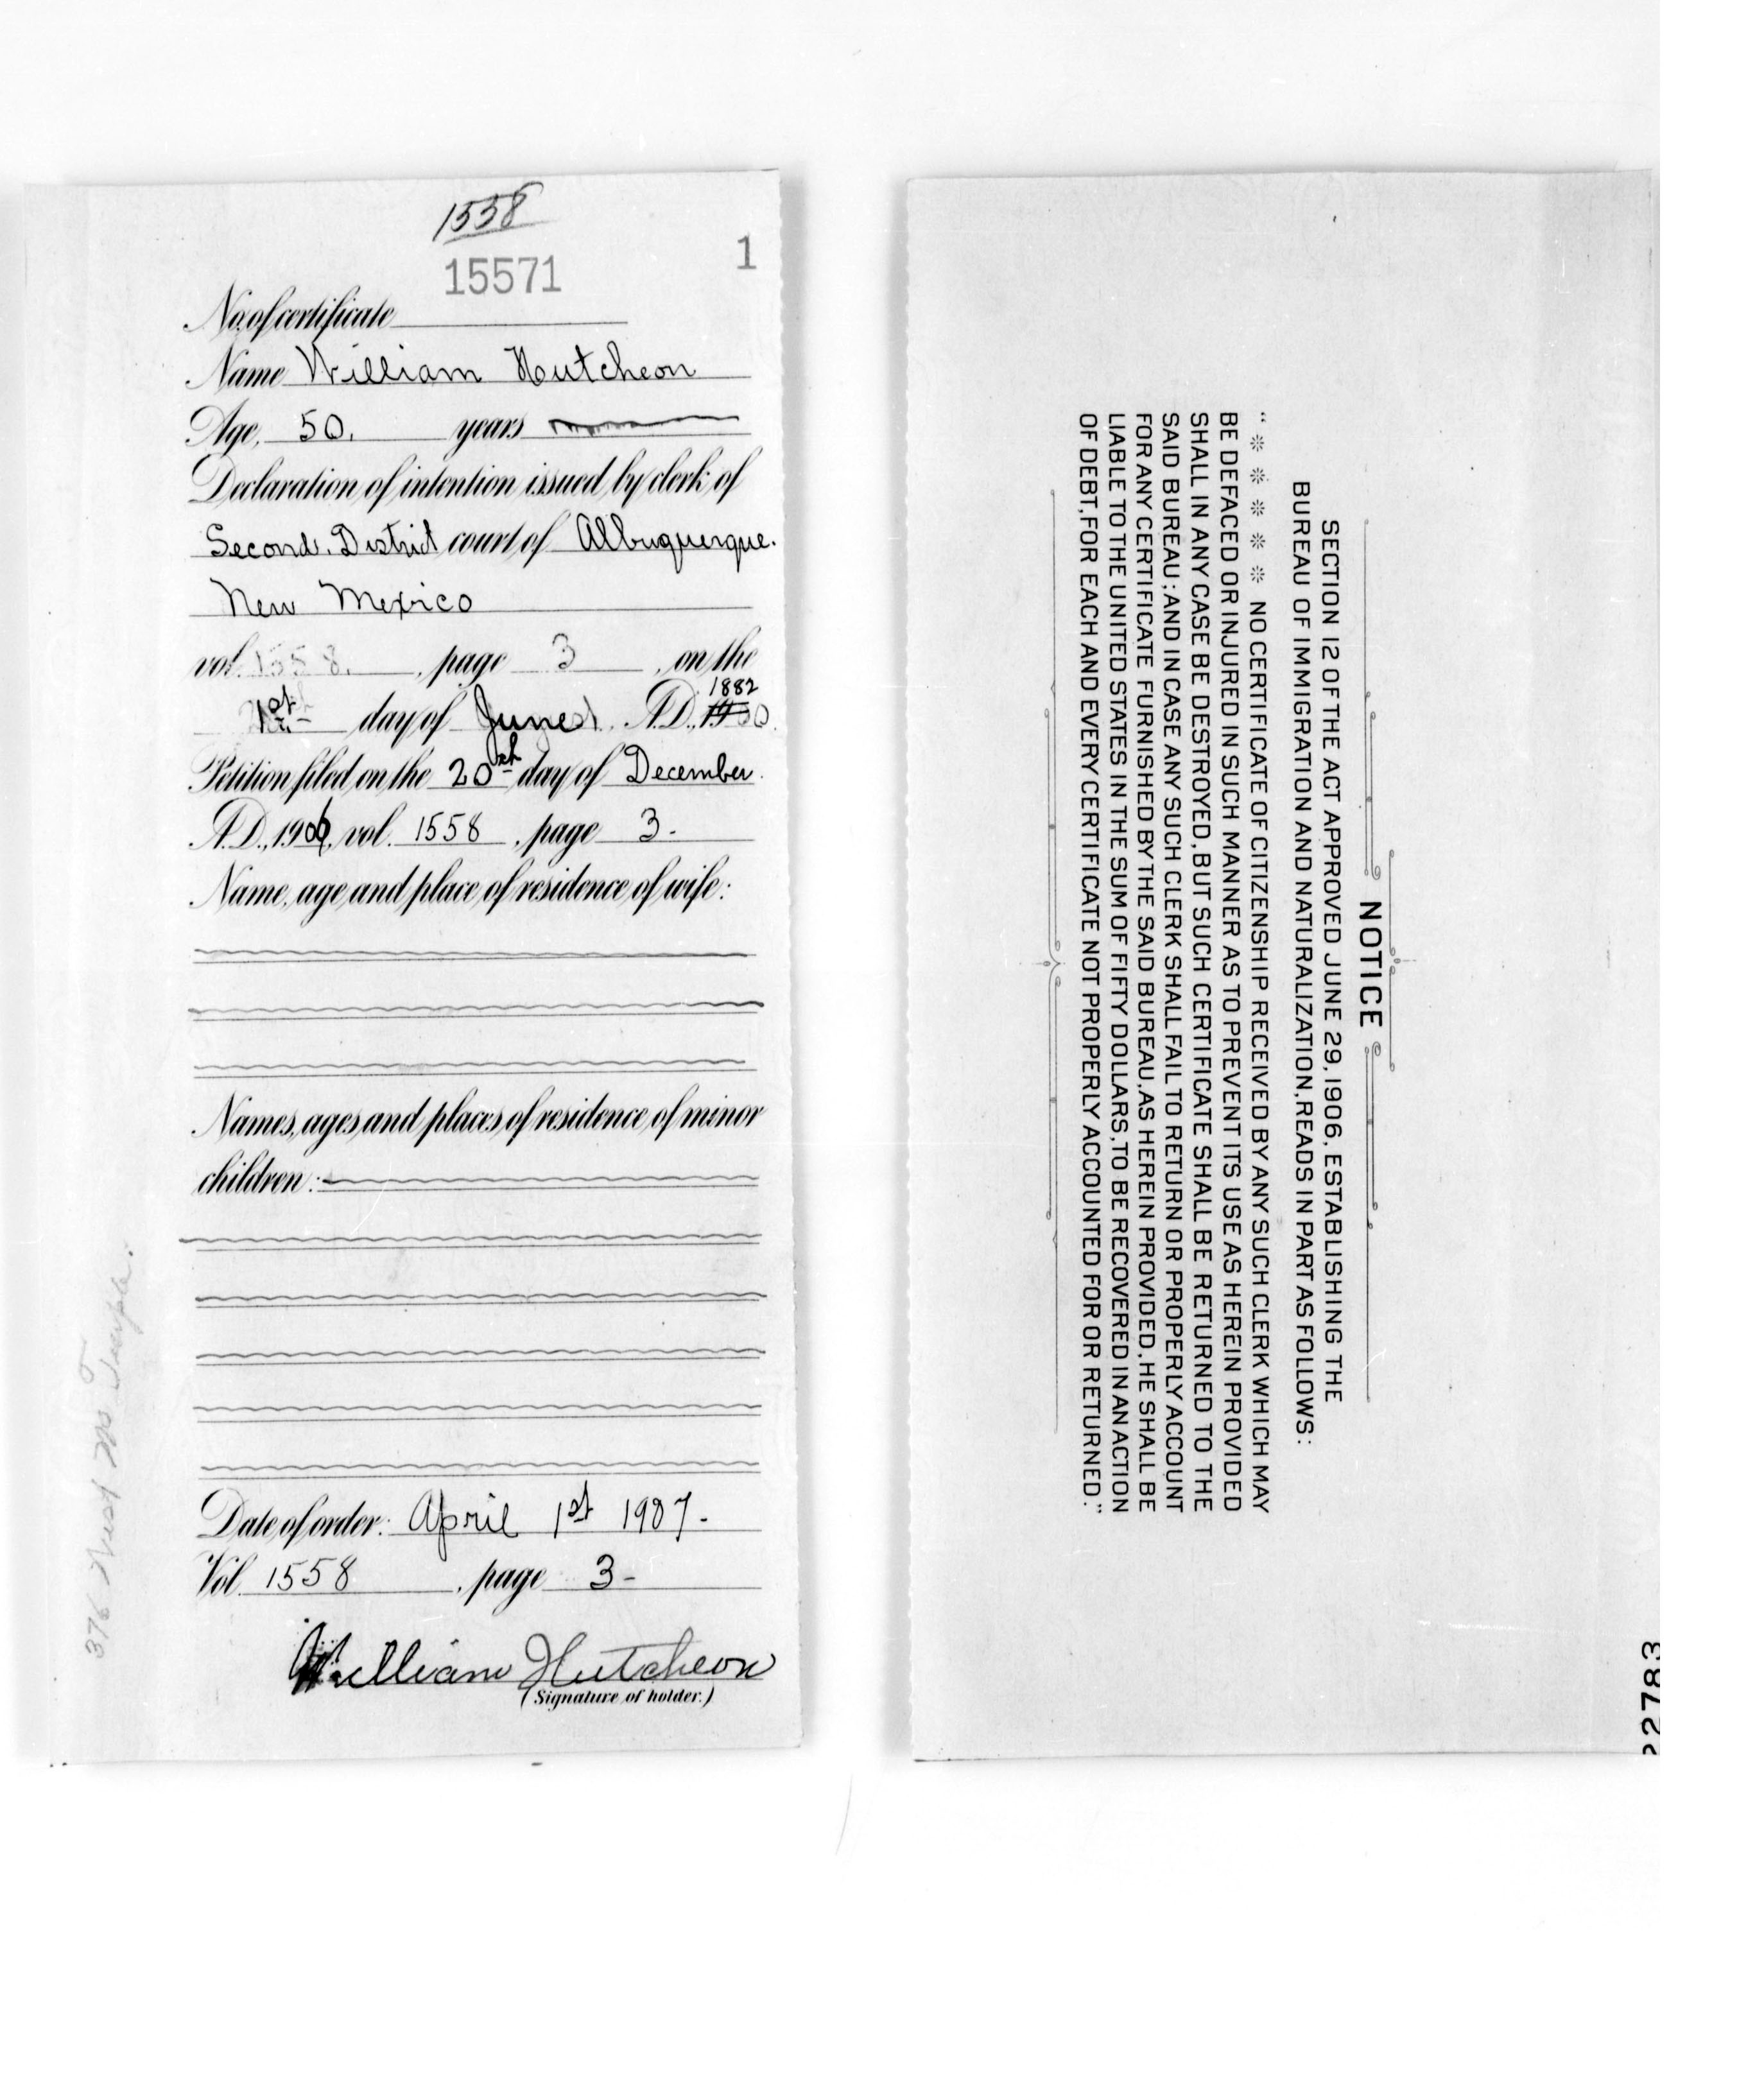 1558
15571
1
No. of certificate
Name William Hutcheon
Age, 50. years
Declaration of intention issued by clerk of
Second. District court of Albuquerque.
New Mexico
vol. 1558. , page 3 , on the
1st day of June A.D., 1882 1900.
Petition filed on the 20th day of December.
A.D., 1906, vol. 1558 , page 3-
Name, age and place of residence of wife:
Names, ages and places of residence of minor
children:
Date of order: April 1st 1907-
Vol. 1558 , page 3-
William Hutcheon
(Signature of holder.)
376 West No Temple.
NOTICE
SECTION 12 OF THE ACT APPROVED JUNE 29, 1906, ESTABLISHING THE
BUREAU OF IMMIGRATION AND NATURALIZATION, READS IN PART AS FOLLOWS:
“ * * * * * NO CERTIFICATE OF CITIZENSHIP RECEIVED BY ANY SUCH CLERK WHICH MAY
BE DEFACED OR INJURED IN SUCH MANNER AS TO PREVENT ITS USE AS HEREIN PROVIDED
SHALL IN ANY CASE BE DESTROYED, BUT SUCH CERTIFICATE SHALL BE RETURNED TO THE
SAID BUREAU; AND IN CASE ANY SUCH CLERK SHALL FAIL TO RETURN OR PROPERLY ACCOUNT
FOR ANY CERTIFICATE FURNISHED BY THE SAID BUREAU, AS HEREIN PROVIDED, HE SHALL BE
LIABLE TO THE UNITED STATES IN THE SUM OF FIFTY DOLLARS, TO BE RECOVERED IN AN ACTION
OF DEBT, FOR EACH AND EVERY CERTIFICATE NOT PROPERLY ACCOUNTED FOR OR RETURNED.”